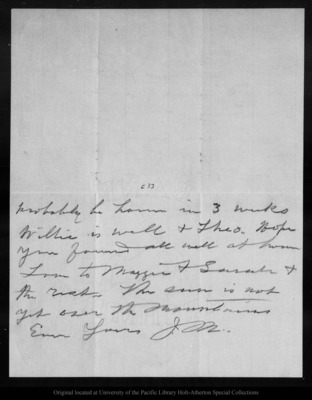 633
probably be home in 3 weeks
Willie is well & Theo. Hope
you found all well at home
Love to Maggie & Sarah &
the rest. The sun is not
yet over the Mountains
Ever Yours J.M.
Original located at University of the Pacific Library Holt-Atherton Special Collections